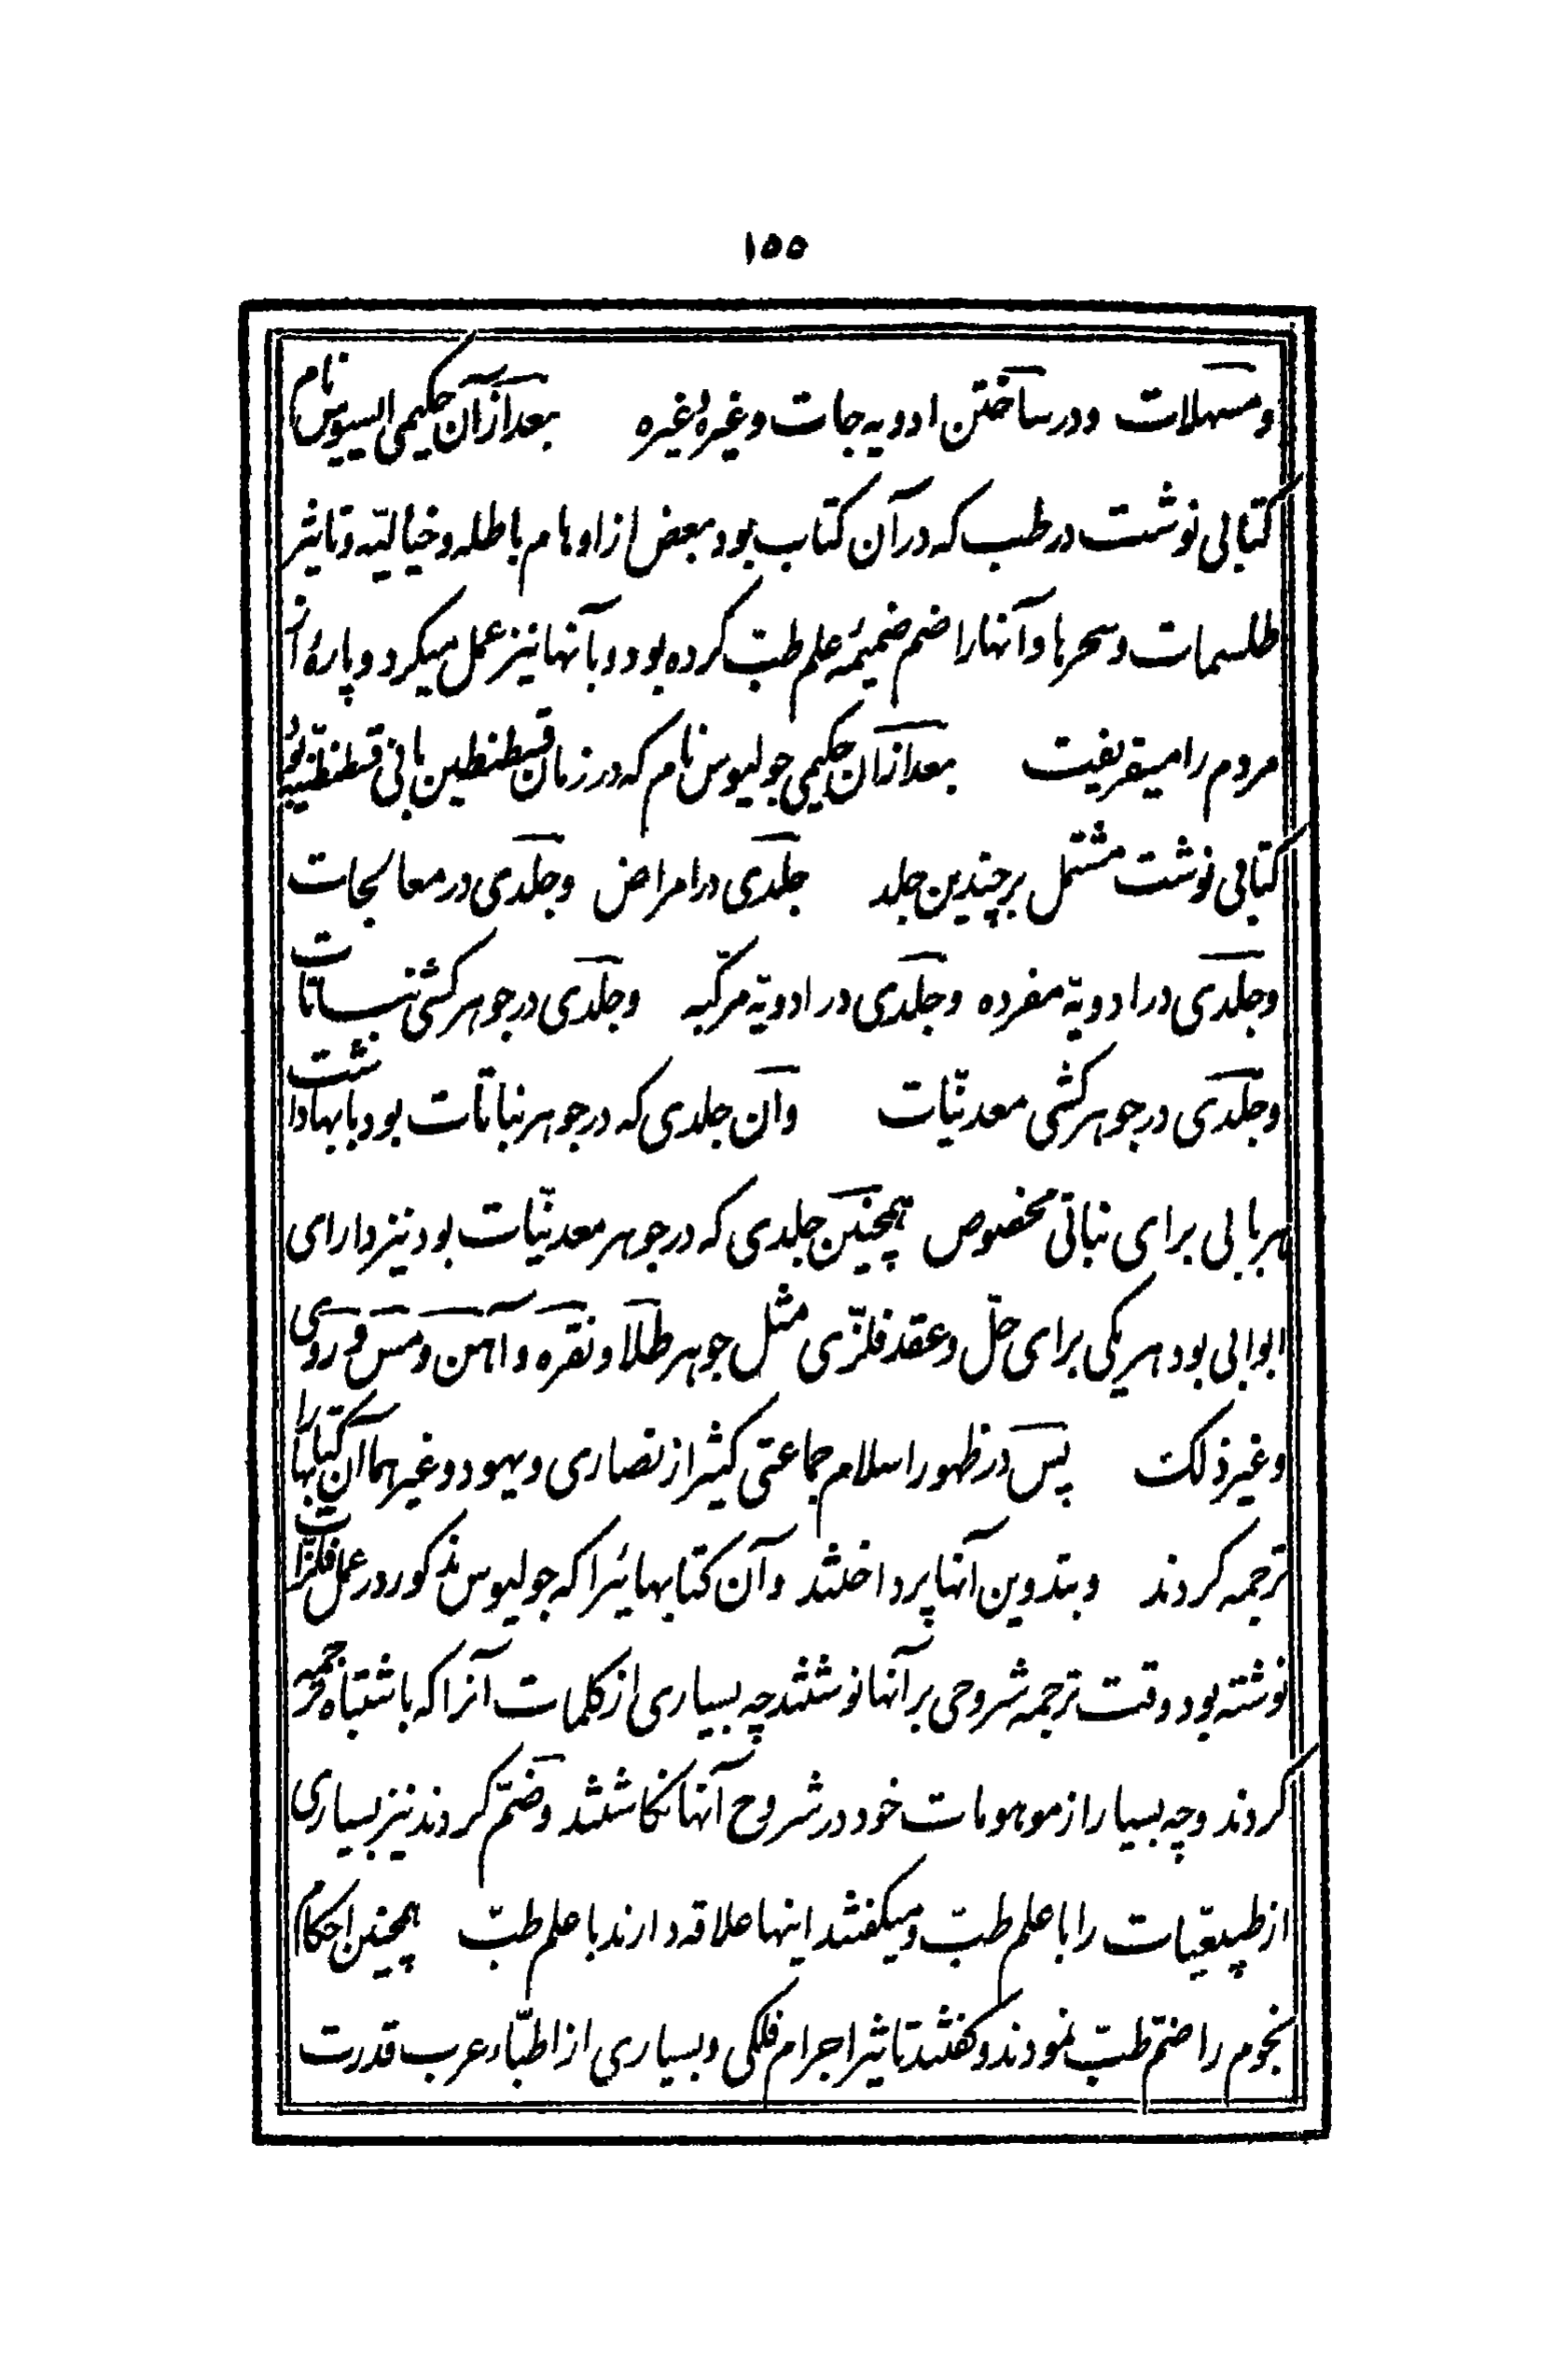 ۱۵۵
و مسهلات و در ساختن ادویه جات و غیره و غیره بعد از آن حکیمی السیوس نام
کتابی نوشت در طب که در آن کتاب بود بعض از اوهام باطله و خیالیّه و تاثیر
طلسمات و سحرها و آنها را ضم ضمیمهٔ علم طبّ کرده بود و بآنها نیز عمل میکرد و پارهٔ از
مردم را میفریفت بعد از آن حکیمی جولیوس نام که در زمان قسطنطین بانی قسطنطنیّه بود
کتابی نوشت مشتمل بر چندین جلد جلدی در امراض و جلدی در معالجات
و جلدی در ادویهٔ مفرده و جلدی در ادویهٔ مرکّبه و جلدی در جوهرکشی نباتات
و جلدی در جوهرکشی معدنیّات و آن جلدی که در جوهر نباتات بود بابها داشت
هر بابی برای نباتی مخصوص همچنین جلدی که در جوهر معدنیّات بود نیز دارای
ابوابی بود هر یکی برای حلّ و عقد فلزّی مثل جوهر طلا و نقره و آهن و مس و روی
و غیر ذلک پس در ظهور اسلام جماعتی کثیر از نصاری و یهود و غیرهما آن کتابها را
ترجمه کردند و بتدوین آنها پرداختند و آن کتابهائیرا که جولیوس مذکور در عمل فلزّات
نوشته بود وقت ترجمه شروحی بر آنها نوشتند چه بسیاری از کلمات آنرا که باشتباه ترجمه
کردند و چه بسیار از موهومات خود در شروح آنها نگاشتند و ضمّ کردند نیز بسیاری
از طبیعیّات را با علم طبّ و میگفتند اینها علاقه دارند با علم طبّ همچنین احکام
نجوم را ضمّ طبّ نمودند و گفتند تاثیر اجرام فلکی و بسیاری از اطبّاء عرب قدرت